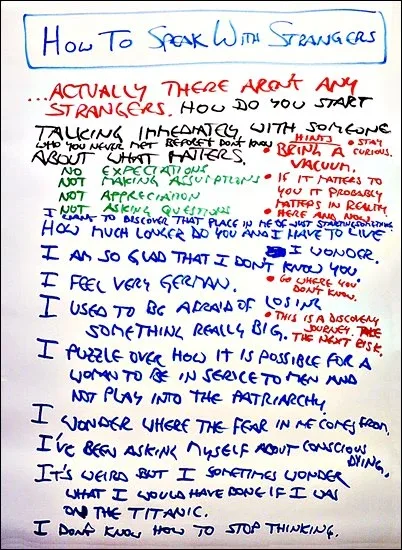 HOW TO SPEAK WITH STRANGERS
...ACTUALLY THERE AREN'T ANY
STRANGERS. HOW DO YOU START
TALKING IMMEDIATELY WITH SOMEONE
WHO YOU NEVER MET BEFORE & DON'T KNOW
ABOUT WHAT MATTERS.
HINTS
• STAY CURIOUS.
• BRING A
VACUUM.
• IF IT MATTERS TO
YOU IT PROBABLY
MATTERS IN REALITY.
• HERE AND NOW.
NO EXPECTATIONS
NOT MAKING ASSUMPTIONS
NOT APPRECIATION
NOT ASKING QUESTIONS
I WANT TO DISCOVER THAT PLACE IN ME OF JUST STARTING
HOW MUCH LONGER DO YOU AND I HAVE TO LIVE
I WONDER.
I AM SO GLAD THAT I DON'T KNOW YOU.
• GO WHERE YOU
DON'T KNOW.
I FEEL VERY GERMAN.
I USED TO BE AFRAID OF LOSING
SOMETHING REALLY BIG.
• THIS IS A DISCOVERY
JOURNEY. TAKE
THE NEXT RISK.
I PUZZLE OVER HOW IT IS POSSIBLE FOR A
WOMAN TO BE IN SERVICE TO MEN AND
NOT PLAY INTO THE PATRIARCHY.
I WONDER WHERE THE FEAR IN ME COMES FROM.
I'VE BEEN ASKING MYSELF ABOUT CONSCIOUS
DYING.
IT'S WEIRD BUT I SOMETIMES WONDER
WHAT I WOULD HAVE DONE IF I WAS
ON THE TITANIC.
I DON'T KNOW HOW TO STOP THINKING.